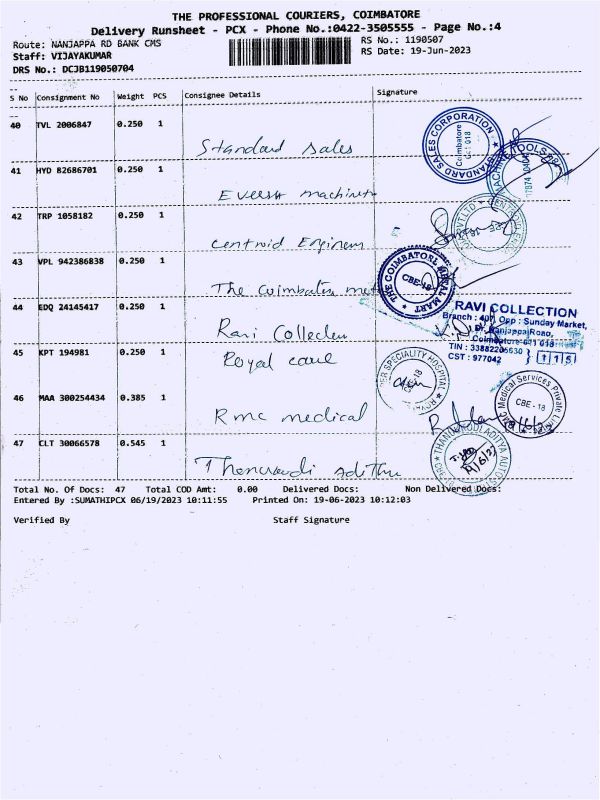 THE PROFESSIONAL COURIERS, COIMBATORE
Delivery Runsheet - PCX - Phone No.:0422-3505555 - Page No.:4
Route: NANJAPPA RD BANK CMS
RS No.: 1190507
Staff: VIJAYAKUMAR
RS Date: 19-Jun-2023
DRS No.: DCJB119050704
S No Consignment No Weight PCS Consignee Details Signature
40 TVL 2006847 0.250 1
Standard Sales
STANDARD SALES CORPORATION
Coimbatore
41 HYD 82686701 0.250 1
machinery
42 TRP 1058182 0.250 1
Centroid
43 VPL 942386838 0.250 1
The Coimbatore
THE COIMBATORE METAL MART
CBE-18
44 EDQ 24145417 0.250 1
Ravi Collection
RAVI COLLECTION
Branch : 407, Opp : Sunday Market,
Nanjappa Road,
Coimbatore-641 018
TIN : 33882205630
CST : 977042
115
45 KPT 194981 0.250 1
Royal care
SPECIALITY HOSPITAL
46 MAA 300254434 0.385 1
Rmc medical
RMC Medical Services Private
CBE - 18
47 CLT 30066578 0.545 1
Total No. Of Docs: 47 Total COD Amt: 0.00 Delivered Docs: Non Delivered Docs:
Entered By :SUMATHIPCX 06/19/2023 10:11:55 Printed On: 19-06-2023 10:12:03
Verified By Staff Signature